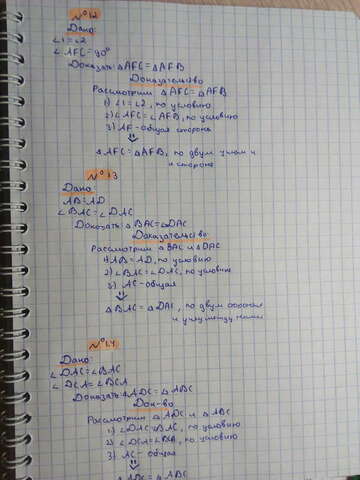 №12
Дано:
∠1=∠2
∠AFC=90°
Доказать: △AFC=△AFB
Доказательство
Рассмотрим △AFC=△AFB
1) ∠1=∠2, по условию
2) ∠AFC=∠AFB, по условию
3) AF-общая сторона
⇓
△AFC=△AFB, по двум углам и
и стороне
№13
Дано:
AB=AD
∠BAC=∠DAC
Доказать: △BAC=△DAC
Доказательство
Рассмотрим △BAC и △DAC
1) AB=AD, по условию
2) ∠BAC=∠DAC, по условию
3) AC-общая
⇓
△BAC=△DAC, по двум сторонам
и углу между ними
№14
Дано:
∠DAC=∠BAC
∠DCA=∠BCA
Доказать: △ADC=△ABC
Док-во
Рассмотрим △ADC и △ABC
1) ∠DAC=∠BAC, по условию
2) ∠DCA=∠BCA, по условию
3) AC-общая
⇓
△ADC=△ABC